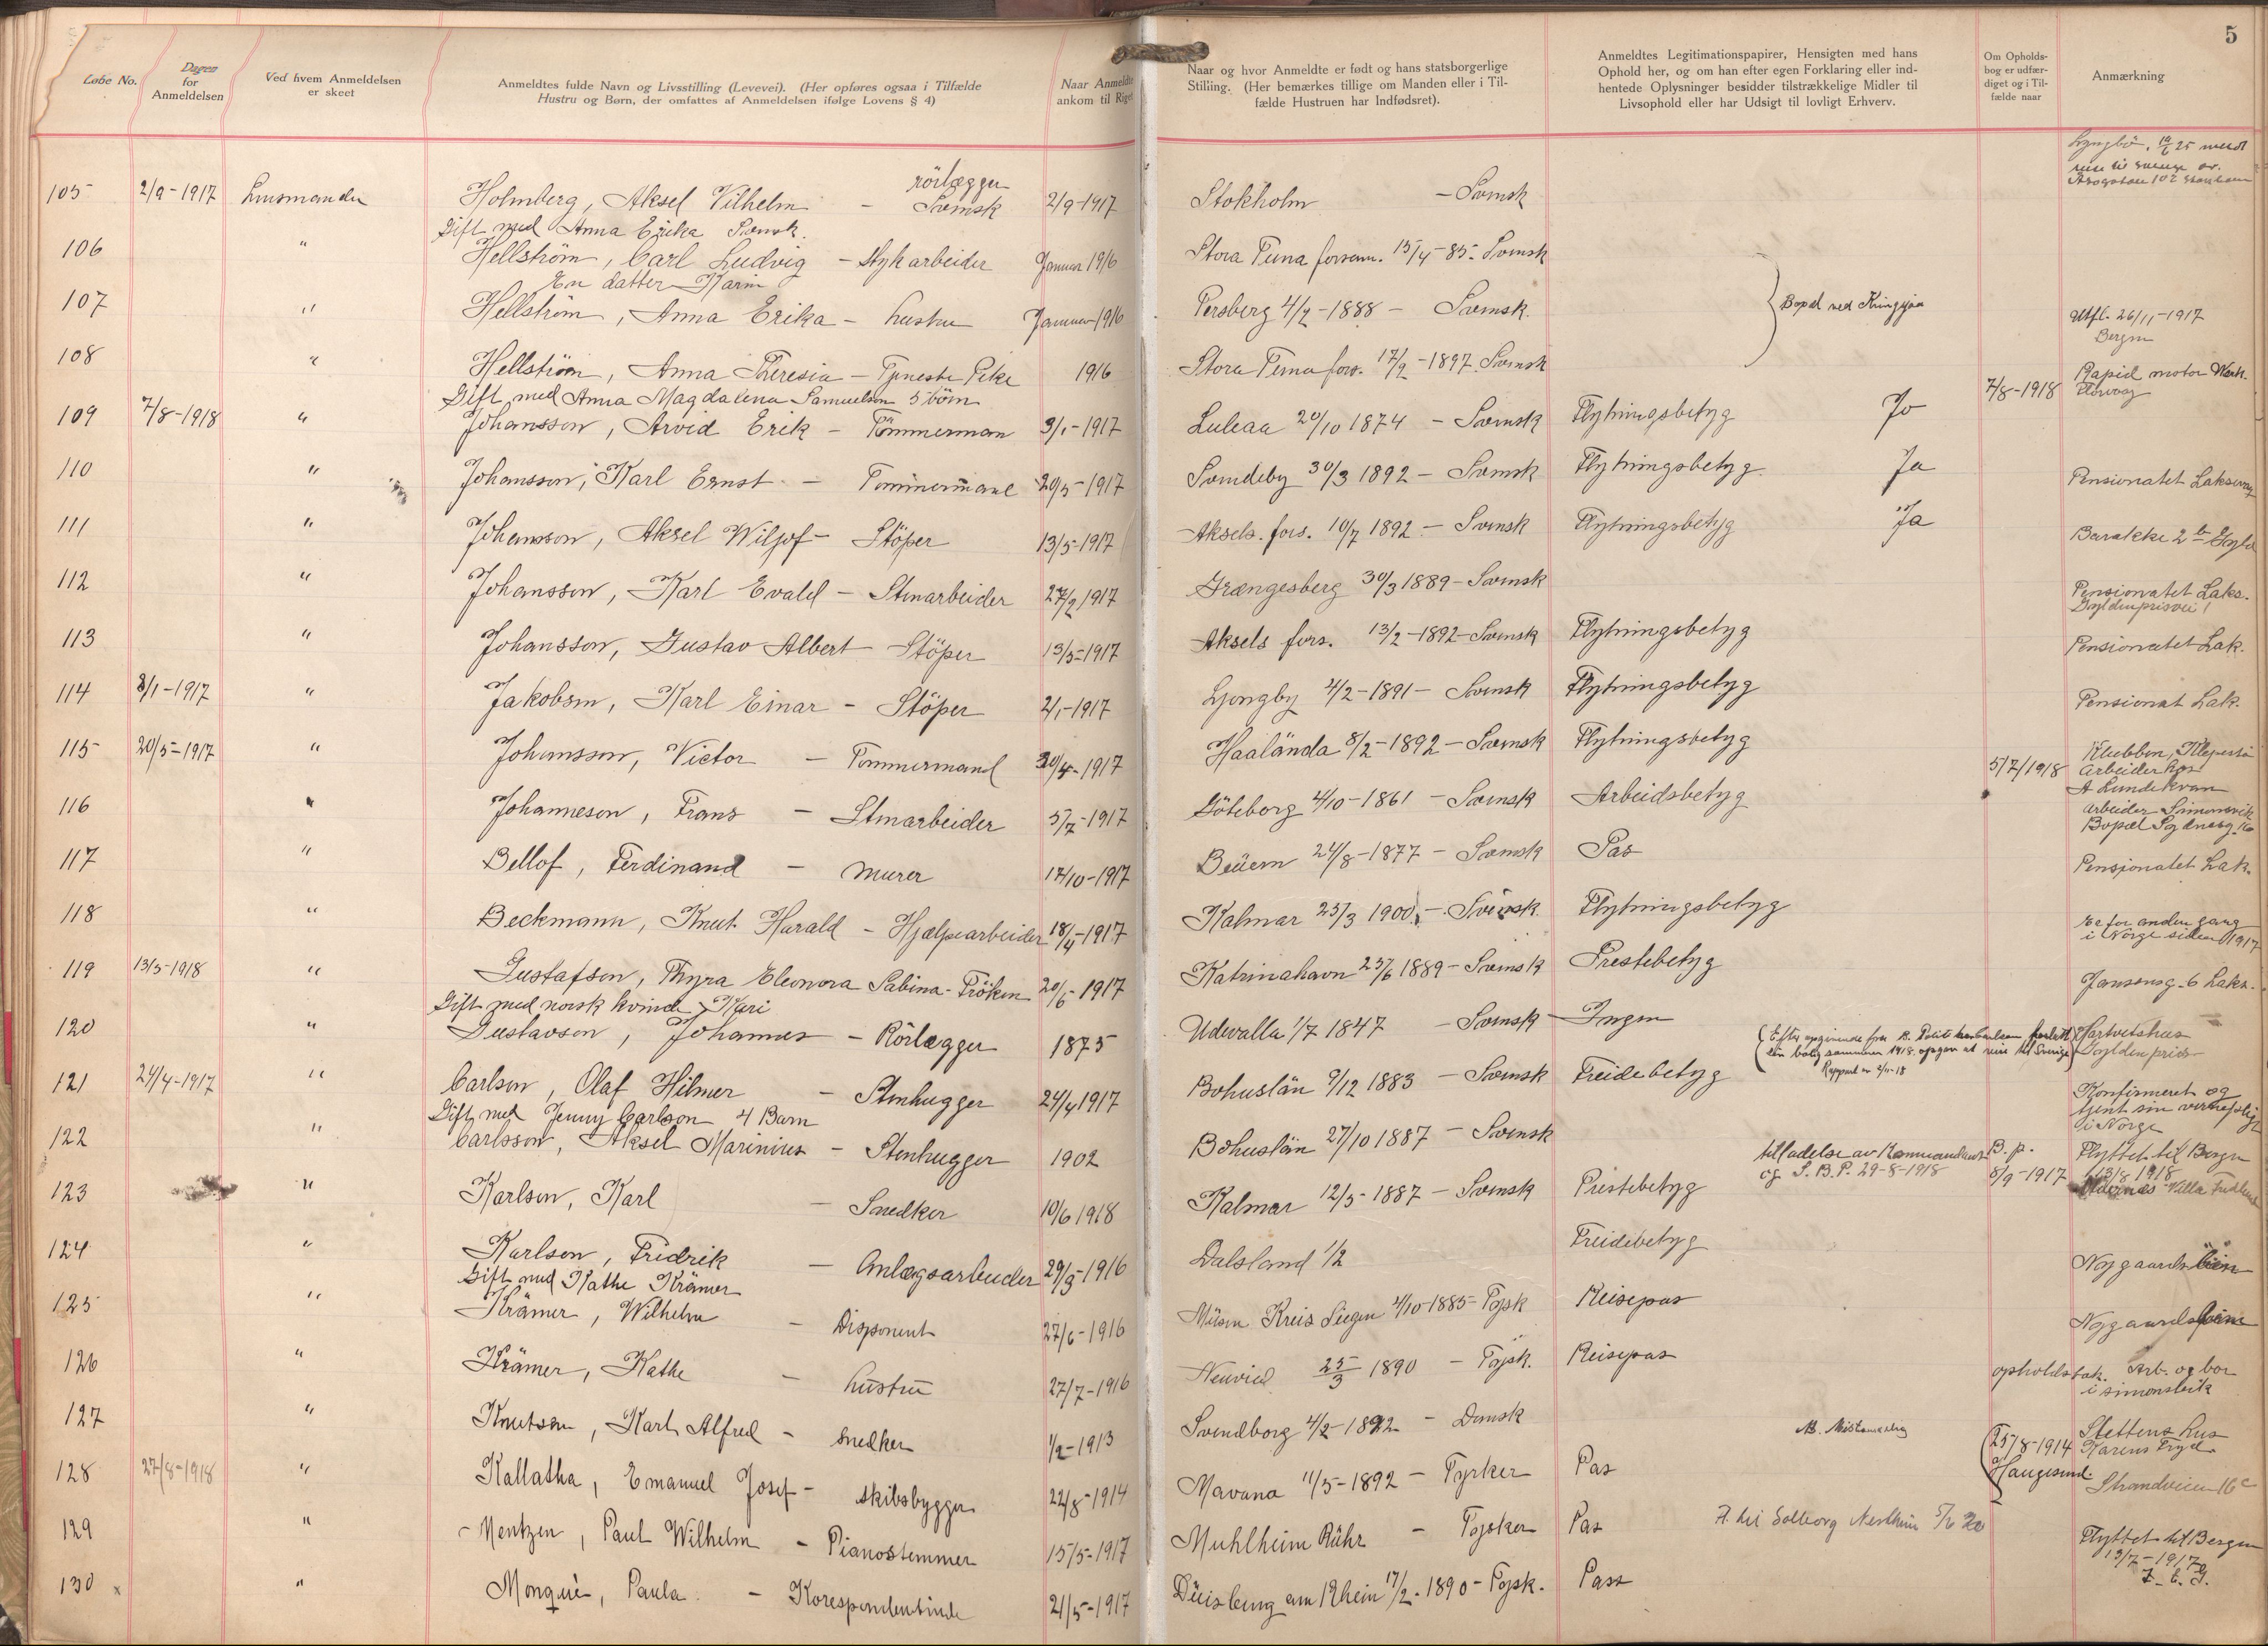 5
Løbe No.
Dagen for Anmeldelsen
Ved hvem Anmeldelsen er skeet
Anmeldtes fulde Navn og Livsstilling (Levevei). (Her opføres ogsaa i Tilfælde
Hustru og Børn, der omfattes af Anmeldelsen ifølge Lovens § 4)
Naar Anmeldte
ankom til Riget
Naar og hvor Anmeldte er født og hans statsborgerlige
Stilling. (Her bemærkes tillige om Manden eller i Til-
fælde Hustruen har Indfødsret).
Anmeldtes Legitimationspapirer, Hensigten med hans
Ophold her, og om han efter egen Forklaring eller ind-
hentede Oplysninger besidder tilstrækkelige Midler til
Livsophold eller har Udsigt til lovligt Erhverv.
Om Opholds-
bog er udfær-
diget og i Til-
fælde naar
Anmærkning
rörlægger
105 2/9-1917 Lensmanden Holmberg, Aksel Vilhelm - Svensk 2/9-1917 Stokholm - Svensk
Gift med Anna Erika Svensk.
106 " Hellström, Carl Ludvig - Styharbeider Januar 1916 Stora Tuna forsam. 15/4-85- Svensk
En datter Karin
107 " Hellström, Anna Erika - hustru Januar 1916 Persberg 4/7-1888 - Svensk. Bopæl ved Kringsjaa Utfl. 26/11-1917
Bergen
108 " Hellström, Anna Theresia - Tjeneste Pike 1916 Stora Tuna fors. 17/9-1897 Svensk
Gift med Anna Magdalena Samuelson 5 börn
Rapid motor Verk.
Florvog
109 7/8-1918 " Johansson, Arvid Erik - Tömmerman 3/1-1917 Luleaa 20/10 1874 - Svensk Flytningsbetyg Ja 7/8-1918
110 " Johansson, Karl Ernst - Tömmermand 20/5-1917 Svendeby 30/3 1892 - Svensk Flytningsbetyg. Ja Pensionatet Laksevag
111 " Johansson, Aksel Wiljof - Stöper 13/5-1917 Aksels. fors. 10/7 1892 - Svensk Flytningsbetyg Ja Barakke 2
112 " Johansson, Karl Evald - Stenarbeider 27/2 1917 Grængesberg 30/3 1889 - Svensk Pensionatet Laks.
Gyldenprisvei 1
113 " Johansson, Gustav Albert - Stöper 13/5-1917 Aksels fors. 13/2-1892 - Svensk Flytningsbetyg Pensionatet Lak.
114 8/1-1917 " Jakobsen, Karl Einar - Stöper 2/1-1917 Ljongby 4/2-1891 - Svensk Flytningsbetyg Pensionat Lak.
115 20/5-1917 " Johansson, Victor - Tömmermand 30/4-1917 Haalända 8/2-1892 - Svensk Flytningsbetyg 5/7/1918 Klubben,
Arbeider hos
A Lundekvam
116 " Johanneson, Frans - Stenarbeider 5/7-1917 Göteborg 4/10-1861 - Svensk Arbeidsbetyg arbeider Simonsvik
Bopæl Sydnesg. 16
117 " Bellof, Ferdinand - murer 17/10-1917 Beüern 24/8-1877 - Svensk Pas Pensjonatet Lak.
118 " Beckmann, Knut Harald - Hjælpearbeider 18/4-1917 Kalmar 25/3 1900 - Svensk Flytningsbetyg Er for anden gang
i Norge siden 1917
119 13/5-1918 " Gustafson, Thyra Eleonora Sabina - Fröken 20/6-1917 Katrinahavn 25/6 1889 - Svensk Prestebetyg Jansensg. 6 Laks.
Gift med norsk kvinde Kari
120 " Gustavson, Johannes - Rörlægger 1875 Udevalla 1/7 1847 - Svensk Ingen
sommer 1918. opgav at reise til Sverige
Rapport av 2/11-18
Hartvetshus
Gyldenpris
121 24/4-1917 " Carlsen, Olaf Hilmer - Stenhugger 24/4 1917 Bohuslän 9/12 1883 - Svensk Freidebetyg Konfirmeret og
tjent sin vernepligt
i Norge
Gift med Jenny Carlson 4 Barn
122 " Carlsson, Aksel Marinius - Stenhugger 1902 Bohuslän 27/10 1887 - Svensk
Flyttet til Bergen
13/8 1918
tilladelse av Kommandant B. p.
og S.B.P. 29-8-1918 8/9-1917
123 " Karlsen, Karl - Snedker 10/6 1918 Kalmar 12/5-1887 - Svensk Prestebetyg Villa
124 " Karlsen, Fridrik - Anlægsarbeider 29/9-1916 Dalsland 1/2 Freidebetyg
Gift med Käthe Krämer
125 " Krämer, Wilhelm - Disponent 27/6-1916 Müsen Kreis Siegen 4/10-1885 - Tysk Reisepas
126 " Krämer, Kathe - hustru 27/7-1916 Neuvied 25/3 1890 - Tysk. Reisepas
opholdsbok. Arb. og bor
i simonsvik
127 " Knutsen, Karl Alfred - snedker 1/2-1913 Svendborg 4/2-1892 - Dansk
Stettens hus
128 27/8-1918 " Kallatha, Emanuel Josef - skibsbygger 22/8-1914 Mavana 11/5-1892 - Tyrker Pas 25/8-1914
Haugesund.
Strandveien 16c
129 " Mentzen, Paul Wilhelm - Pianostemmer 15/5-1917 Muhlheim Rühr - Tysker Pas Fl. til Solborg Nestheim 5/6 20
Flyttet til Bergen
13/7-1917
130 x " Monqué, Paula - Korespondentinde 21/5-1917 Düisburg am Rhein 17/2-1890 - Tysk. Pass